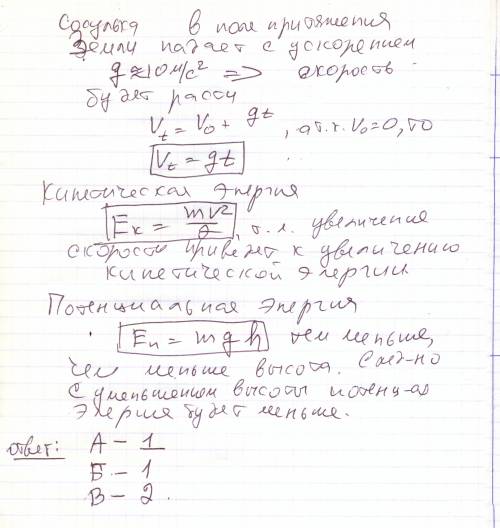 Сосулька в поле притяжения
Земли падает с ускорением
g ≈ 10 м/с² => скорость
будет расти
Vt = V0 + gt, а т.к. V0 = 0, то
Vt = gt
Кинетическая энергия
Eк = mv²/2, т.е. увеличение
скорости приведет к увеличению
кинетической энергии
Потенциальная энергия
Eп = mgh тем меньше,
чем меньше высота. След-но
с уменьшением высоты потенц-ая
энергия будет меньше.
ответ: А – 1
Б – 1
В – 2.